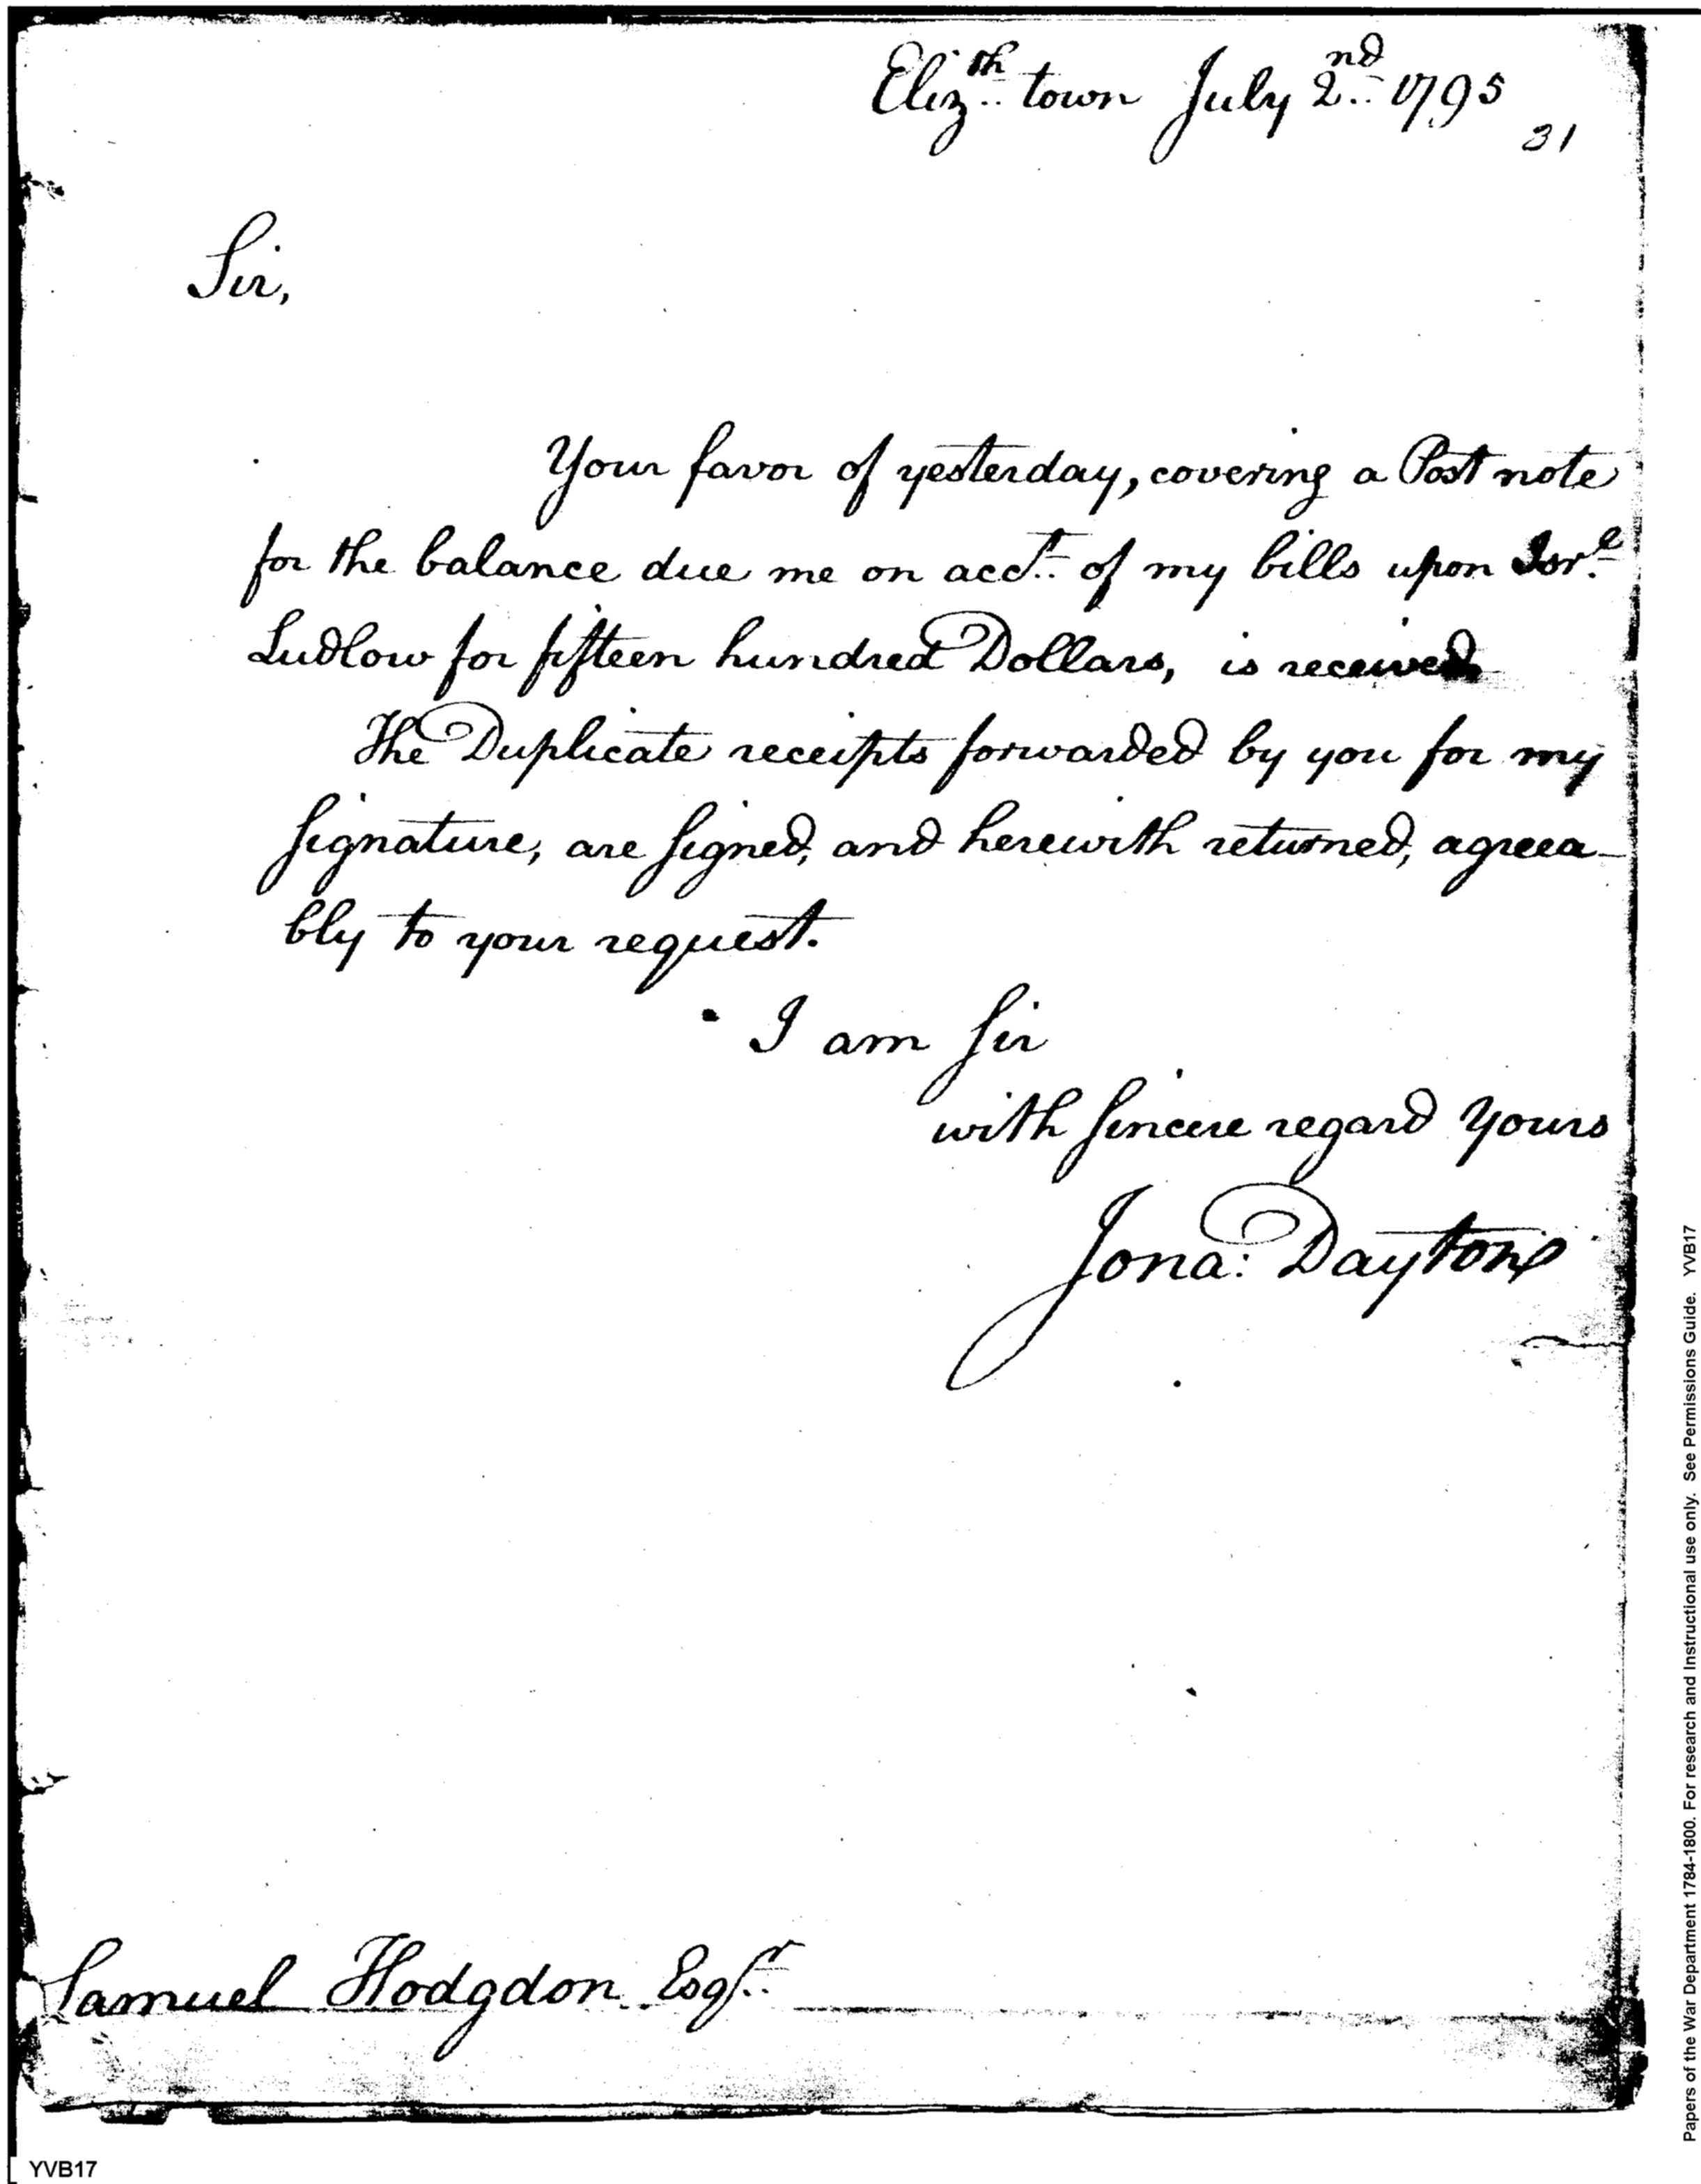 Eliz.th town July 2.nd 1795
31
Sir,
Your favor of yesterday, covering a Post note
for the balance due me on acct. of my bills upon Isr.l
Ludlow for fifteen hundred Dollars, is received
The Duplicate receipts forwarded by you for my
signature, are signed, and herewith returned, agreea-
bly to your request.
I am Sir
with sincere regard Yours
Jona: Dayton
Samuel Hodgdon Esqr.
YVB17
Papers of the War Department 1784-1800. For research and Instructional use only. See Permissions Guide. YVB17